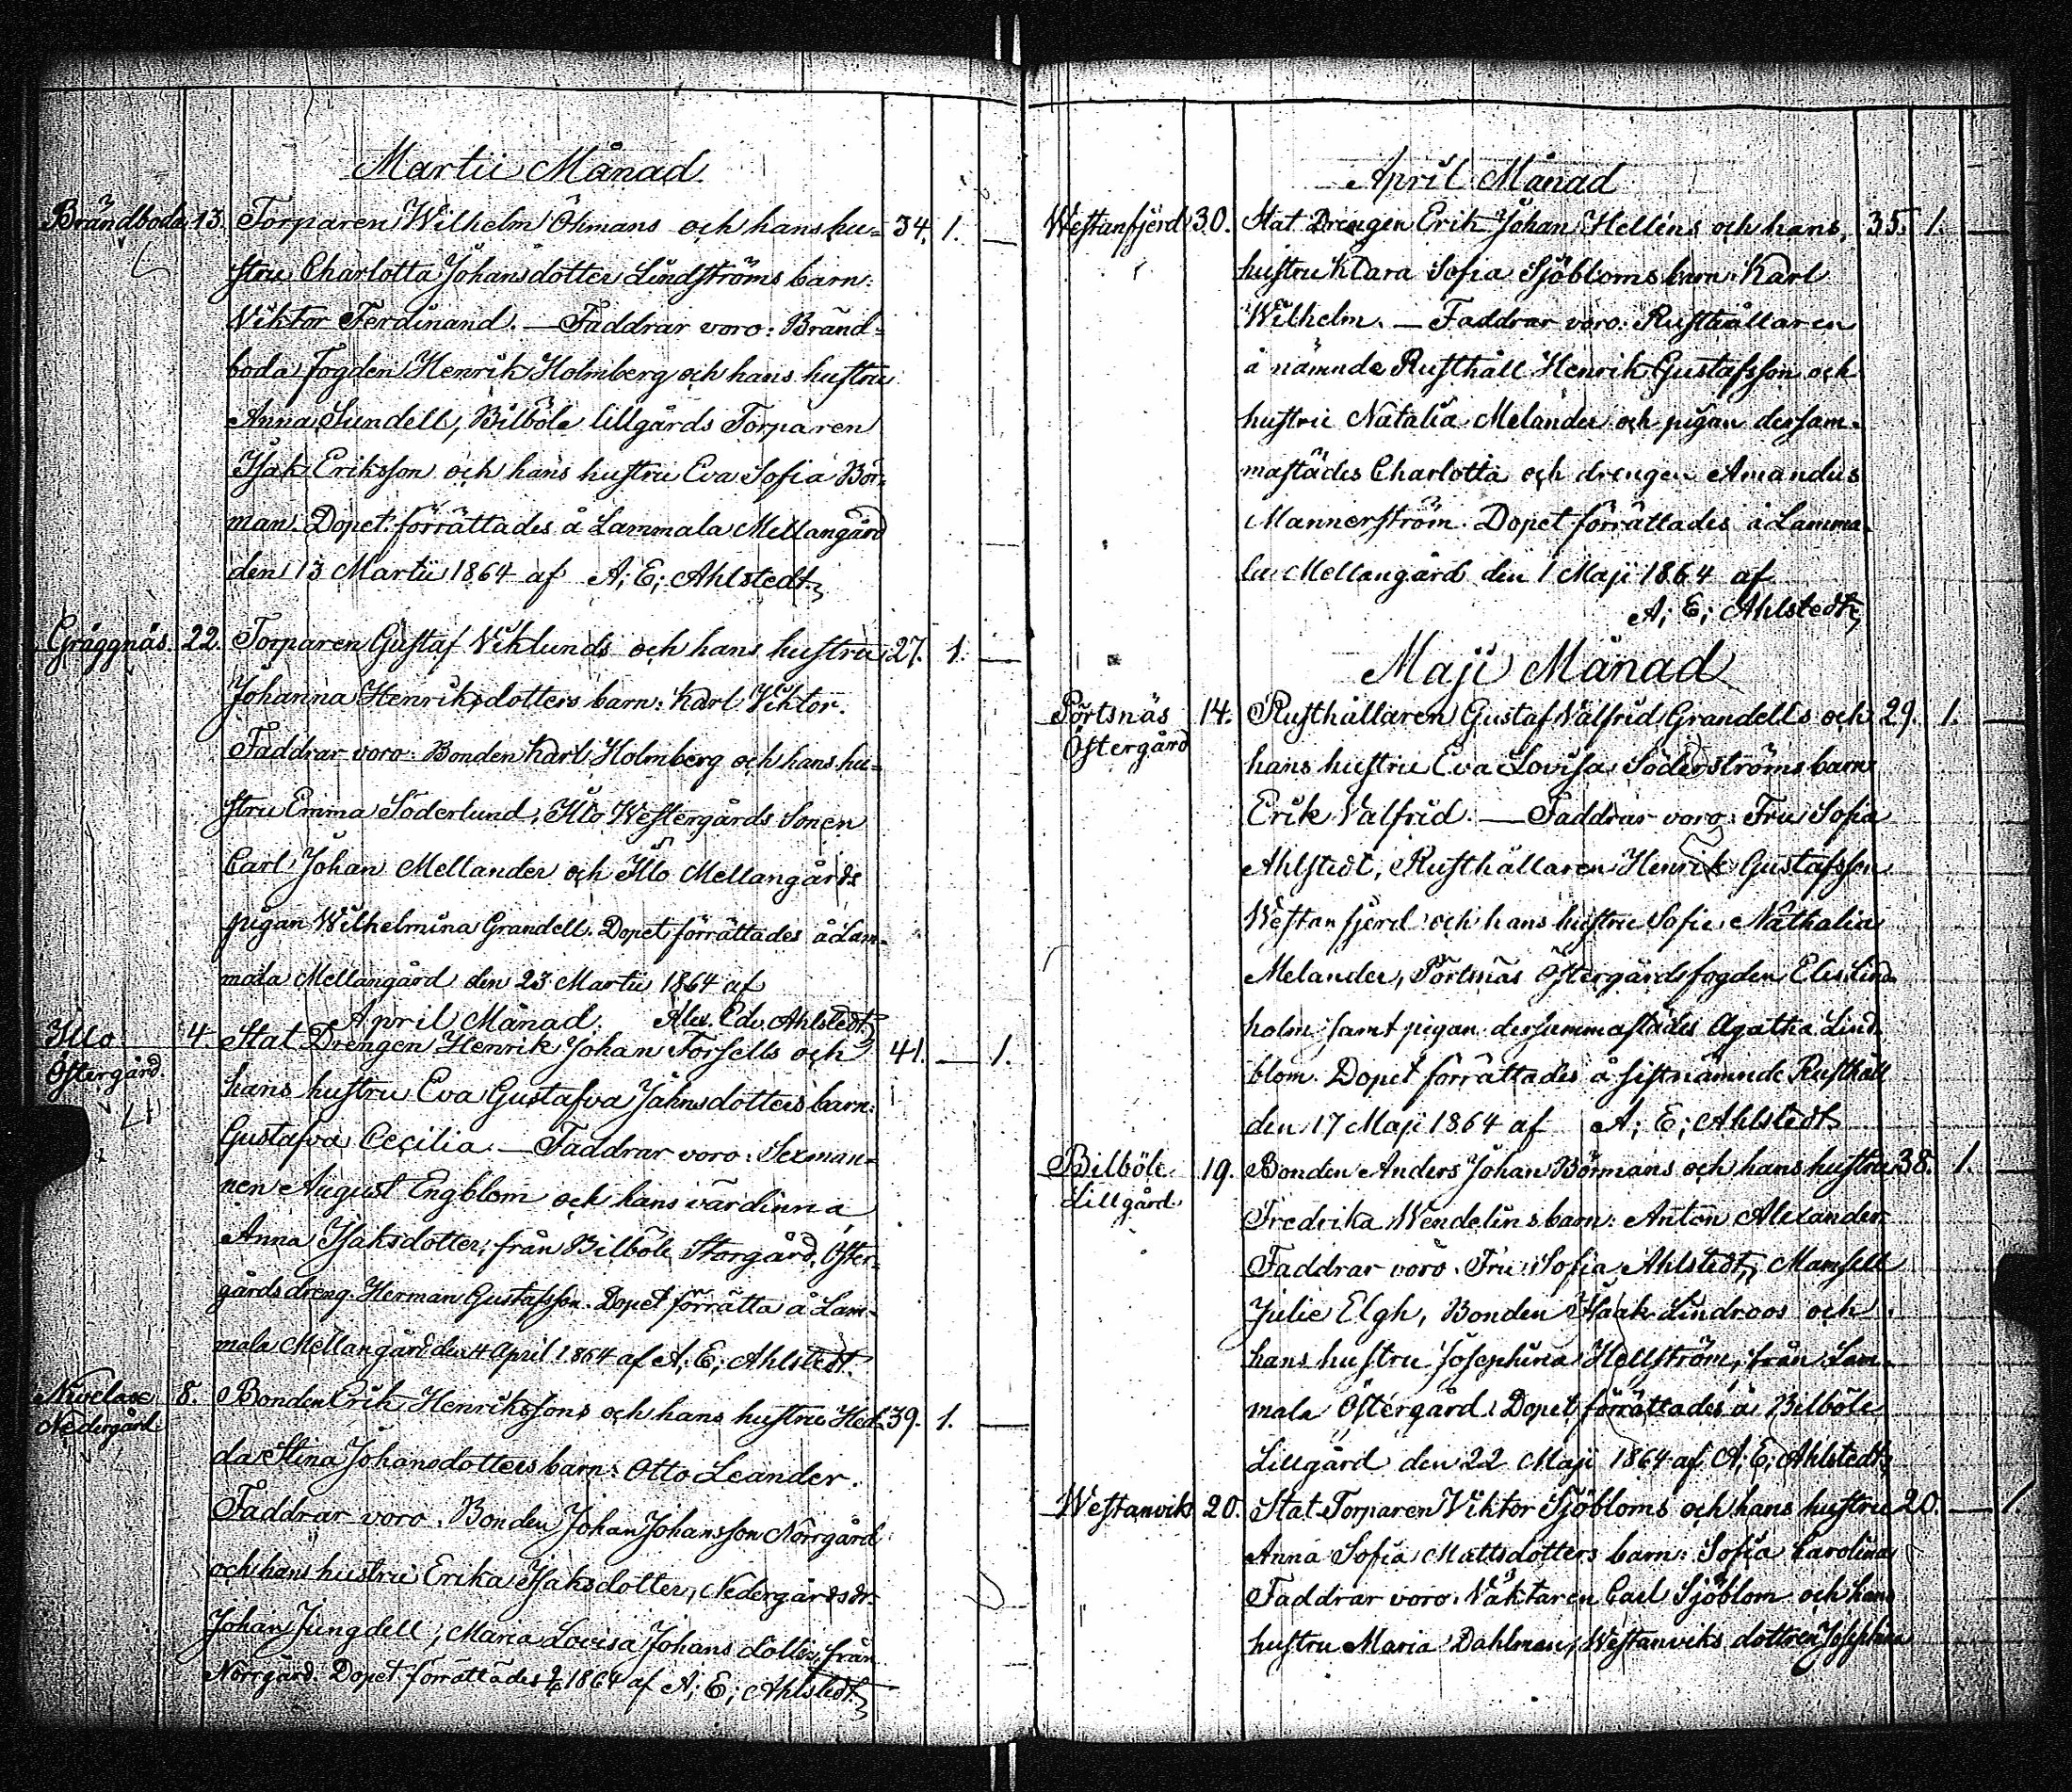 Martii Månad.
Brändboda 13. Torparen Wilhelm Öhmans och hans hu= 34. 1. —
stru Charlotta Johansdotter Lindströms barn:
Viktor Ferdinand. — Faddrar voro: Bränd=
boda fogden Henrik Holmberg och hans hustru
Anna Sundell, Bilböle lillgårds Torparen
Isak Eriksson och hans hustru Eva Sofia Bör=
man. Dopet förrättades å Lammala Mellangård
den 13 Martii 1864 af A; E; Ahlstedt
Gräggnäs 22. Torparen Gustaf Viklunds och hans hustru 27. 1. —
Johanna Henriksdotters barn: Karl Viktor.
Faddrar voro: Bonden Karl Holmberg och hans hu=
stru Emma Söderlund, Illo Westergårds Sonen
Carl Johan Mellander och Illo Mellangårds
pigan Wilhelmina Grandell. Dopet förrättades å Lam=
mala Mellangård den 23 Martii 1864 af
Alex. Edv. Ahlstedt
April Månad.
Illo 4. Stat Drengen Henrik Johan Forsells och 41. — 1.
Östergård. hans hustru Eva Gustafva Jahnsdotters barn:
Gustafva Cecilia. — Faddrar voro: Sexman=
nen August Engblom och hans värdinna
Anna Isaksdotter, från Bilböle Storgård, Öster=
gårds dreng Herman Gustafsson. Dopet förrätta å Lam=
mala Mellangård den 4 April 1864 af A; E; Ahlstedt.
Nivelax 8. Bonden Erik Henrikssons och hans hustru Hed= 39. 1. —
Nedergård da Stina Johansdotters barn: Otto Leander.
Faddrar voro: Bonden Johan Johansson Norrgård
och hans hustru Erika Isaksdotter, Nedergårds dr.
Johan Jungdell, Maria Lovisa Johans dotter, från
Norrgård. Dopet förrättades 1864 af A; E; Ahlstedt
April Månad
Westanfjerd 30. Stat Drengen Erik Johan Helléns och hans 35. 1. —
hustru Klara Sofia Sjöbloms barn: Karl
Wilhelm. — Faddrar voro: Rusthållaren
å nämnde Rusthåll Henrik Gustafsson och
hustru Natalia Melander och pigan dersam=
mastädes Charlotta och drengen Amandus
Mannerström. Dopet förrättades å Lamma=
la Mellangård den 1 Maji 1864 af
A; E; Ahlstedt
Maji Månad
Pörtsnäs 14. Rusthållaren Gustaf Valfrid Grandells och 29. 1. —
Östergård hans hustru Eva Lovisa Söderströms barn
Erik Valfrid. — Faddrar voro: Fru Sofia
Ahlstedt, Rusthållaren Henrik Gustafsson
Westanfjerd och hans hustru Sofie Nathalia
Melander, Pörtsnäs Östergårds fogden Elis Lind=
holm samt pigan dersummastädes Agatha Lind=
blom. Dopet förrättades å sistnämnde Rusthåll
den 17 Maji 1864 af A; E; Ahlstedt
Bilböle 19. Bonden Anders Johan Börmans och hans hustru 38. 1. —
Lillgård Fredrika Wendelins barn: Anton Alexander.
Faddrar voro: Fru Sofia Ahlstedt, Mamsell
Julie Elgh, Bonden Isaak Lindroos och
hans hustru Josephina Hellström, från Lam=
mala Östergård. Dopet förrättades å Bilböle
Lillgård den 22 Maji 1864 af A; E; Ahlstedt
Westanvik 20. Stat Torparen Viktor Sjöbloms och hans hustru 20. — 1.
Anna Sofia Mattsdotters barn: Sofia Carolina
Faddrar voro: Väktaren Carl Sjöblom och hans
hustru Maria Dahlman, Westanviks dottren Josephina